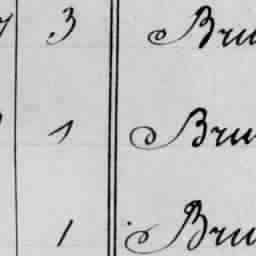 3 Bru
1 Bru
1 Bru